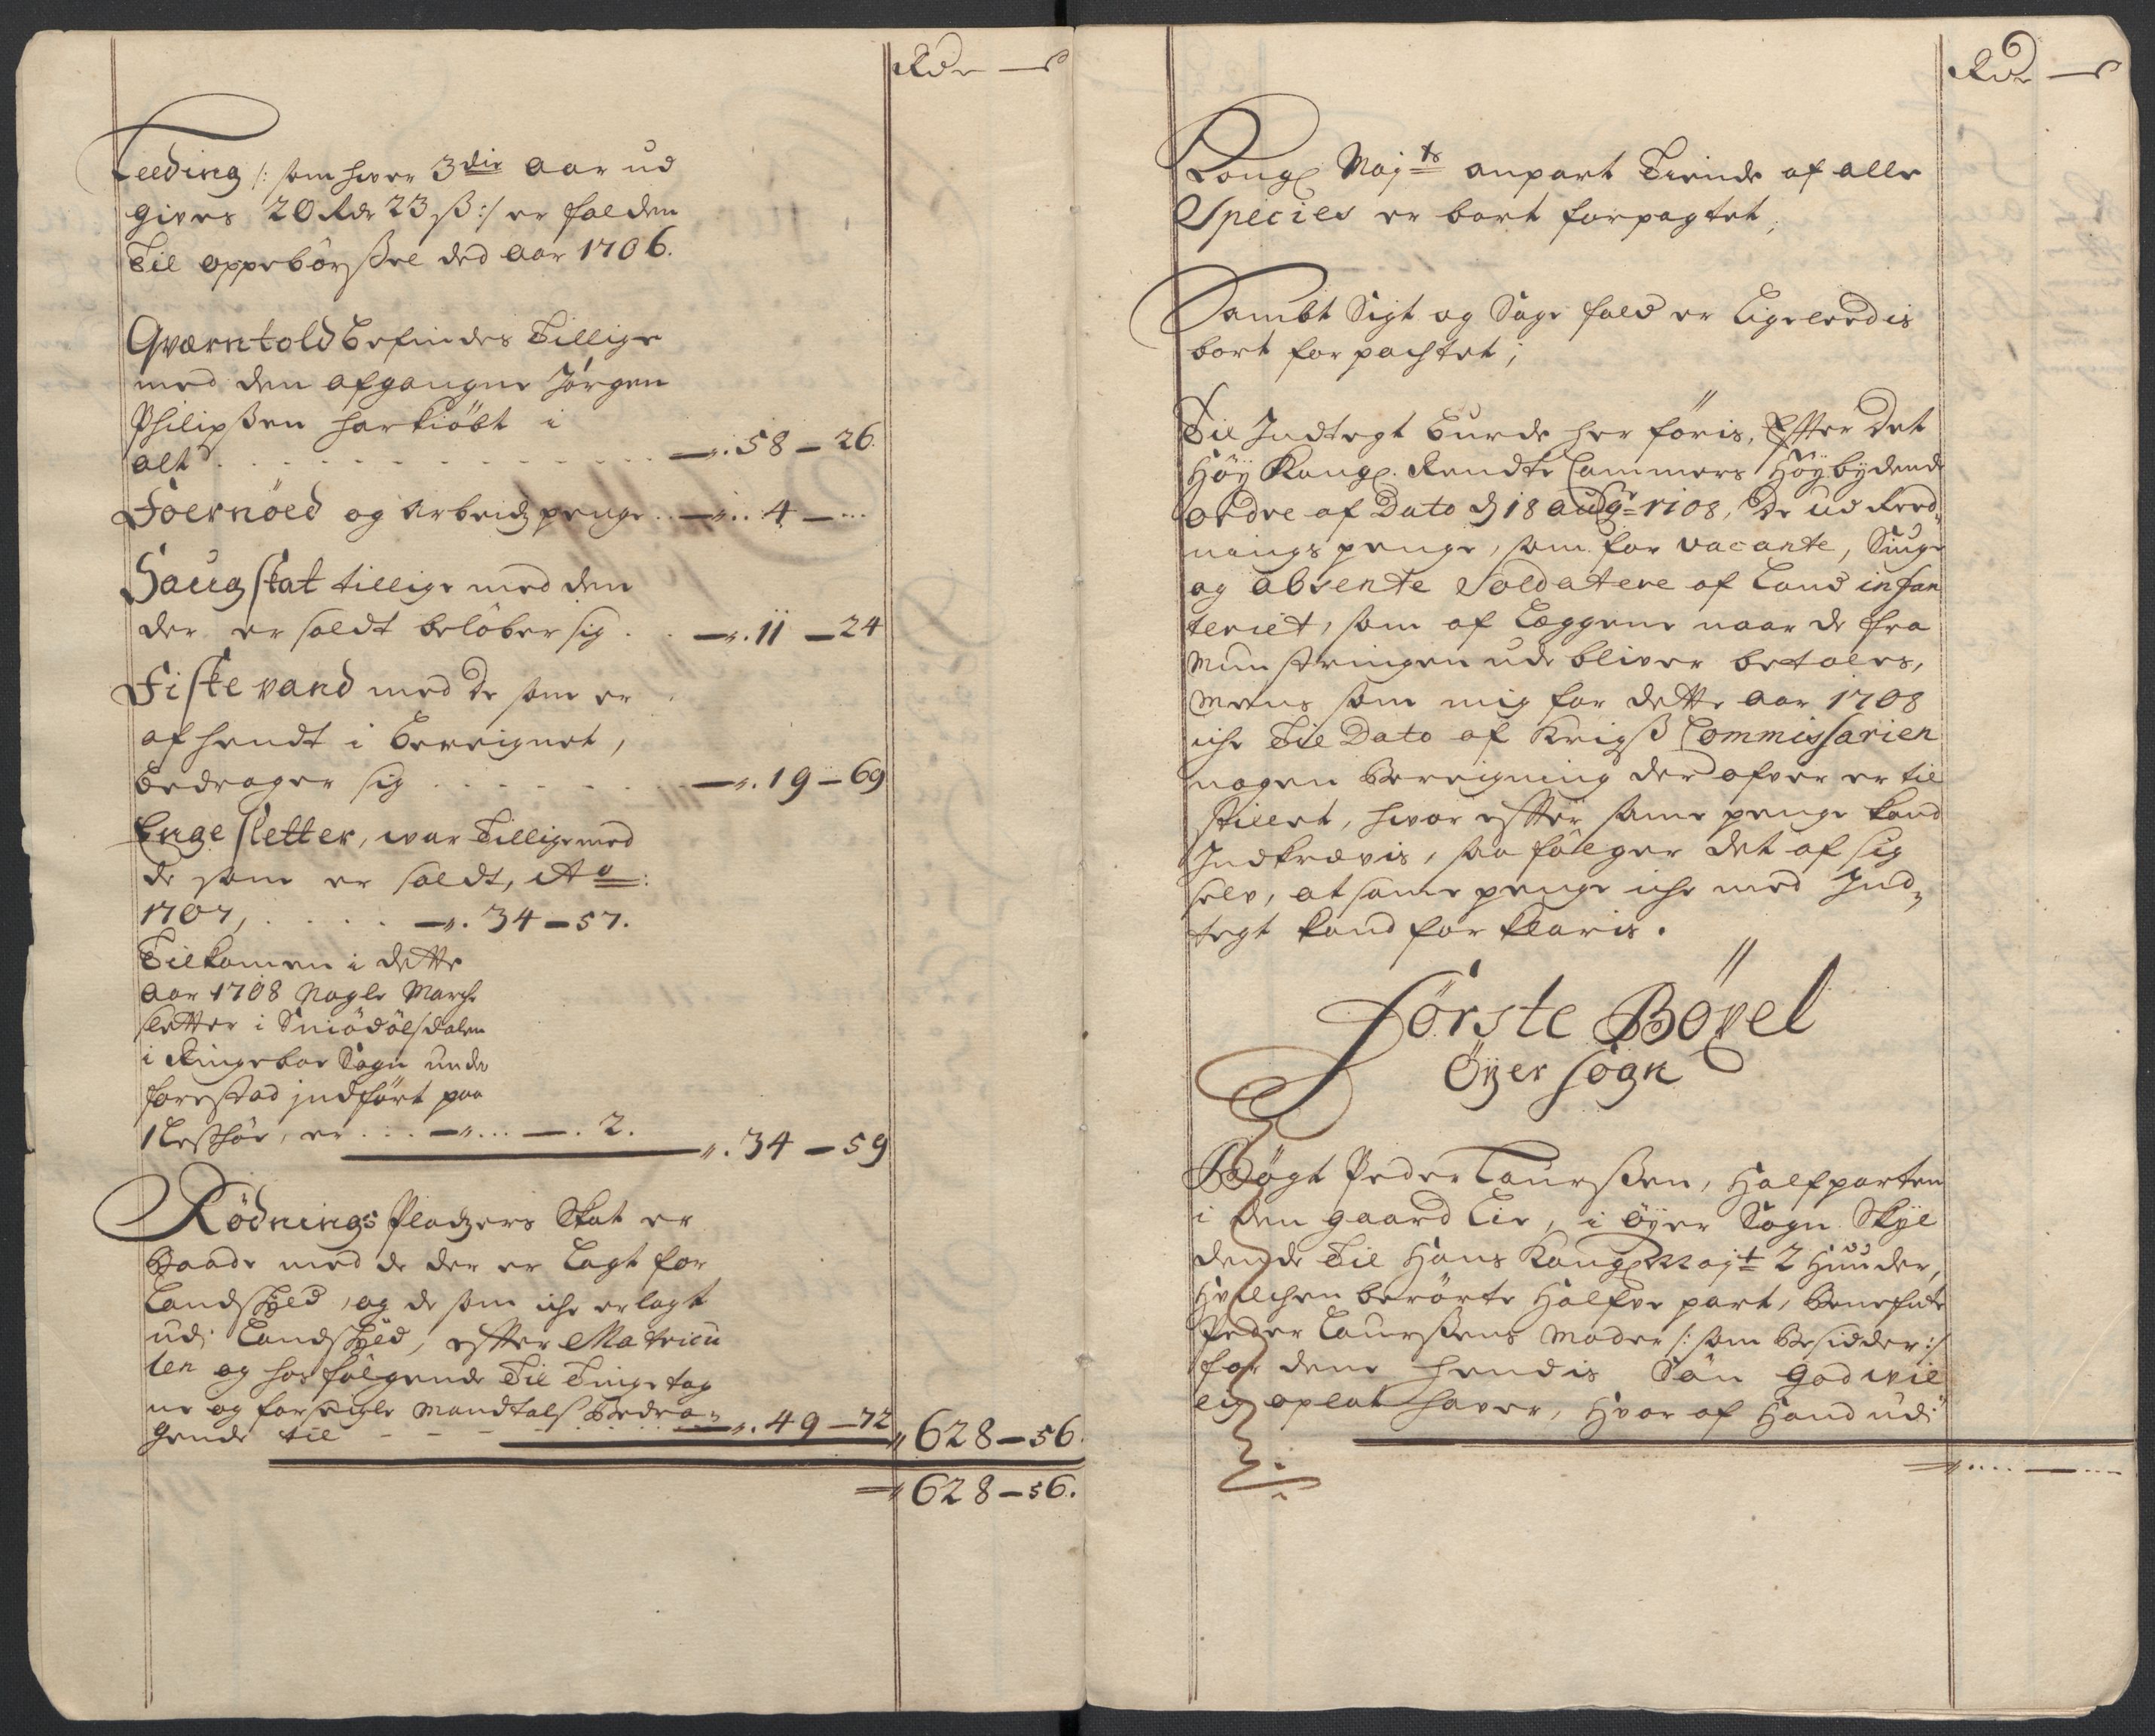 Rdr — ß
Leeding /: som hver 3die aar ud
gives 20 Rdr 23 ß :/ er falden
Til oppebörßel ded aar 1706.
Qværntold befindes Tillige
med den afgangne Jörgen
Philipßen har kiöbt i
alt . . . . . . — „. 58 – 26.
Foernöed og Arbeidz penge . . — „ . . 4 — . . .
Saugskat tillige med den
der er soldt belöber sig . . — „. 11 – 24
Fiskevand med de som er
afhendt i Bereignet,
bedrager sig . . . . . — „. 19 – 69
Engesletter, war Tillige med
de som er soldt, Ao:
1707, . . . . — „. 34 – 57.
Tilkomen i dette
aar 1708 Nogle March
sletter i Smiödölsdalen
i Ringeboe Sogn unde
forestad jndfört paa
1 , er . . . — „ . . . — . 2.
„. 34 – 59
Rödnings Pladzers Skat er
Baade med de der er Lagt for
Landskyld, og de som iche er lagt
udj Landskyld, effter Matricu
len og hosfölgende Til Tinge tag
ne og forseigle Mandtals Bedra-
gende til — — — „. 49 – 72
„ 628 – 56.
„ 628 – 56.
Rdr — ß
Kongl Majts anpart Tiende af alle
Species er bort forpagtet;
Sambt Sigt og Sage fald er Ligeleedis
bort forpachtet;
Til Indtegt burde her föris, Effter Det
Höy Kongl. Rendte Cammers Höybydende
ordre af Dato d 18 Aug 1708, De ud Reed-
nings penge, som for vacante, Siuge
og absente Soldatere af Land infan
teriet, som af Læggene naar de fra
Mynstringen ude bliver betales,
Mens som mig for dette aar 1708
iche Til Dato af Krigß Commissarien
nogen Bereigning der ofver er til
stillet, hvor effter same penge kand
Indkrævis, saa fölger det af sig
selv, at same penge iche med Ind-
tegt kand forklaris.
Förste Böxel
Öyer sogn
Bögt Peder Laurßen, Halfparten
i den gaard Lie, i Öyer Sogn Skyl
dende Til Hans Kongl Majt 2 Huuder,
Hvilchen berörte Halfve part, benefnte
Peder Laurßens Moder /: som besidder :/
for dene hendis Sön godwil
lig oplat haver, Hvor af Hand udj
„ . . . . — . . .